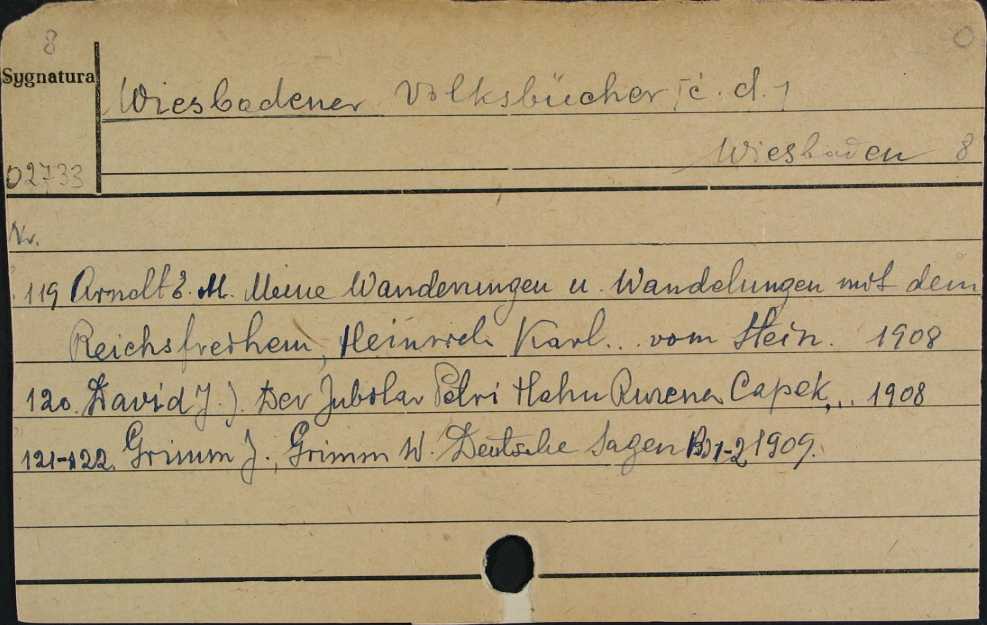 8
Sygnatura
02733
Wiesbadener Volksbücher [c. d.]
Wiesbaden 8
Nr.
119 Arndt E. M. Meine Wanderungen u. Wandelungen mit dem
Reichsfreiherrn, Heinrich Karl... vom Stein. 1908
120. David J.). Der Jubilar Petri Hahn Ruzena Capek... 1908
121-122 Grimm J., Grimm W. Deutsche Sagen Bd 1-2 1909.